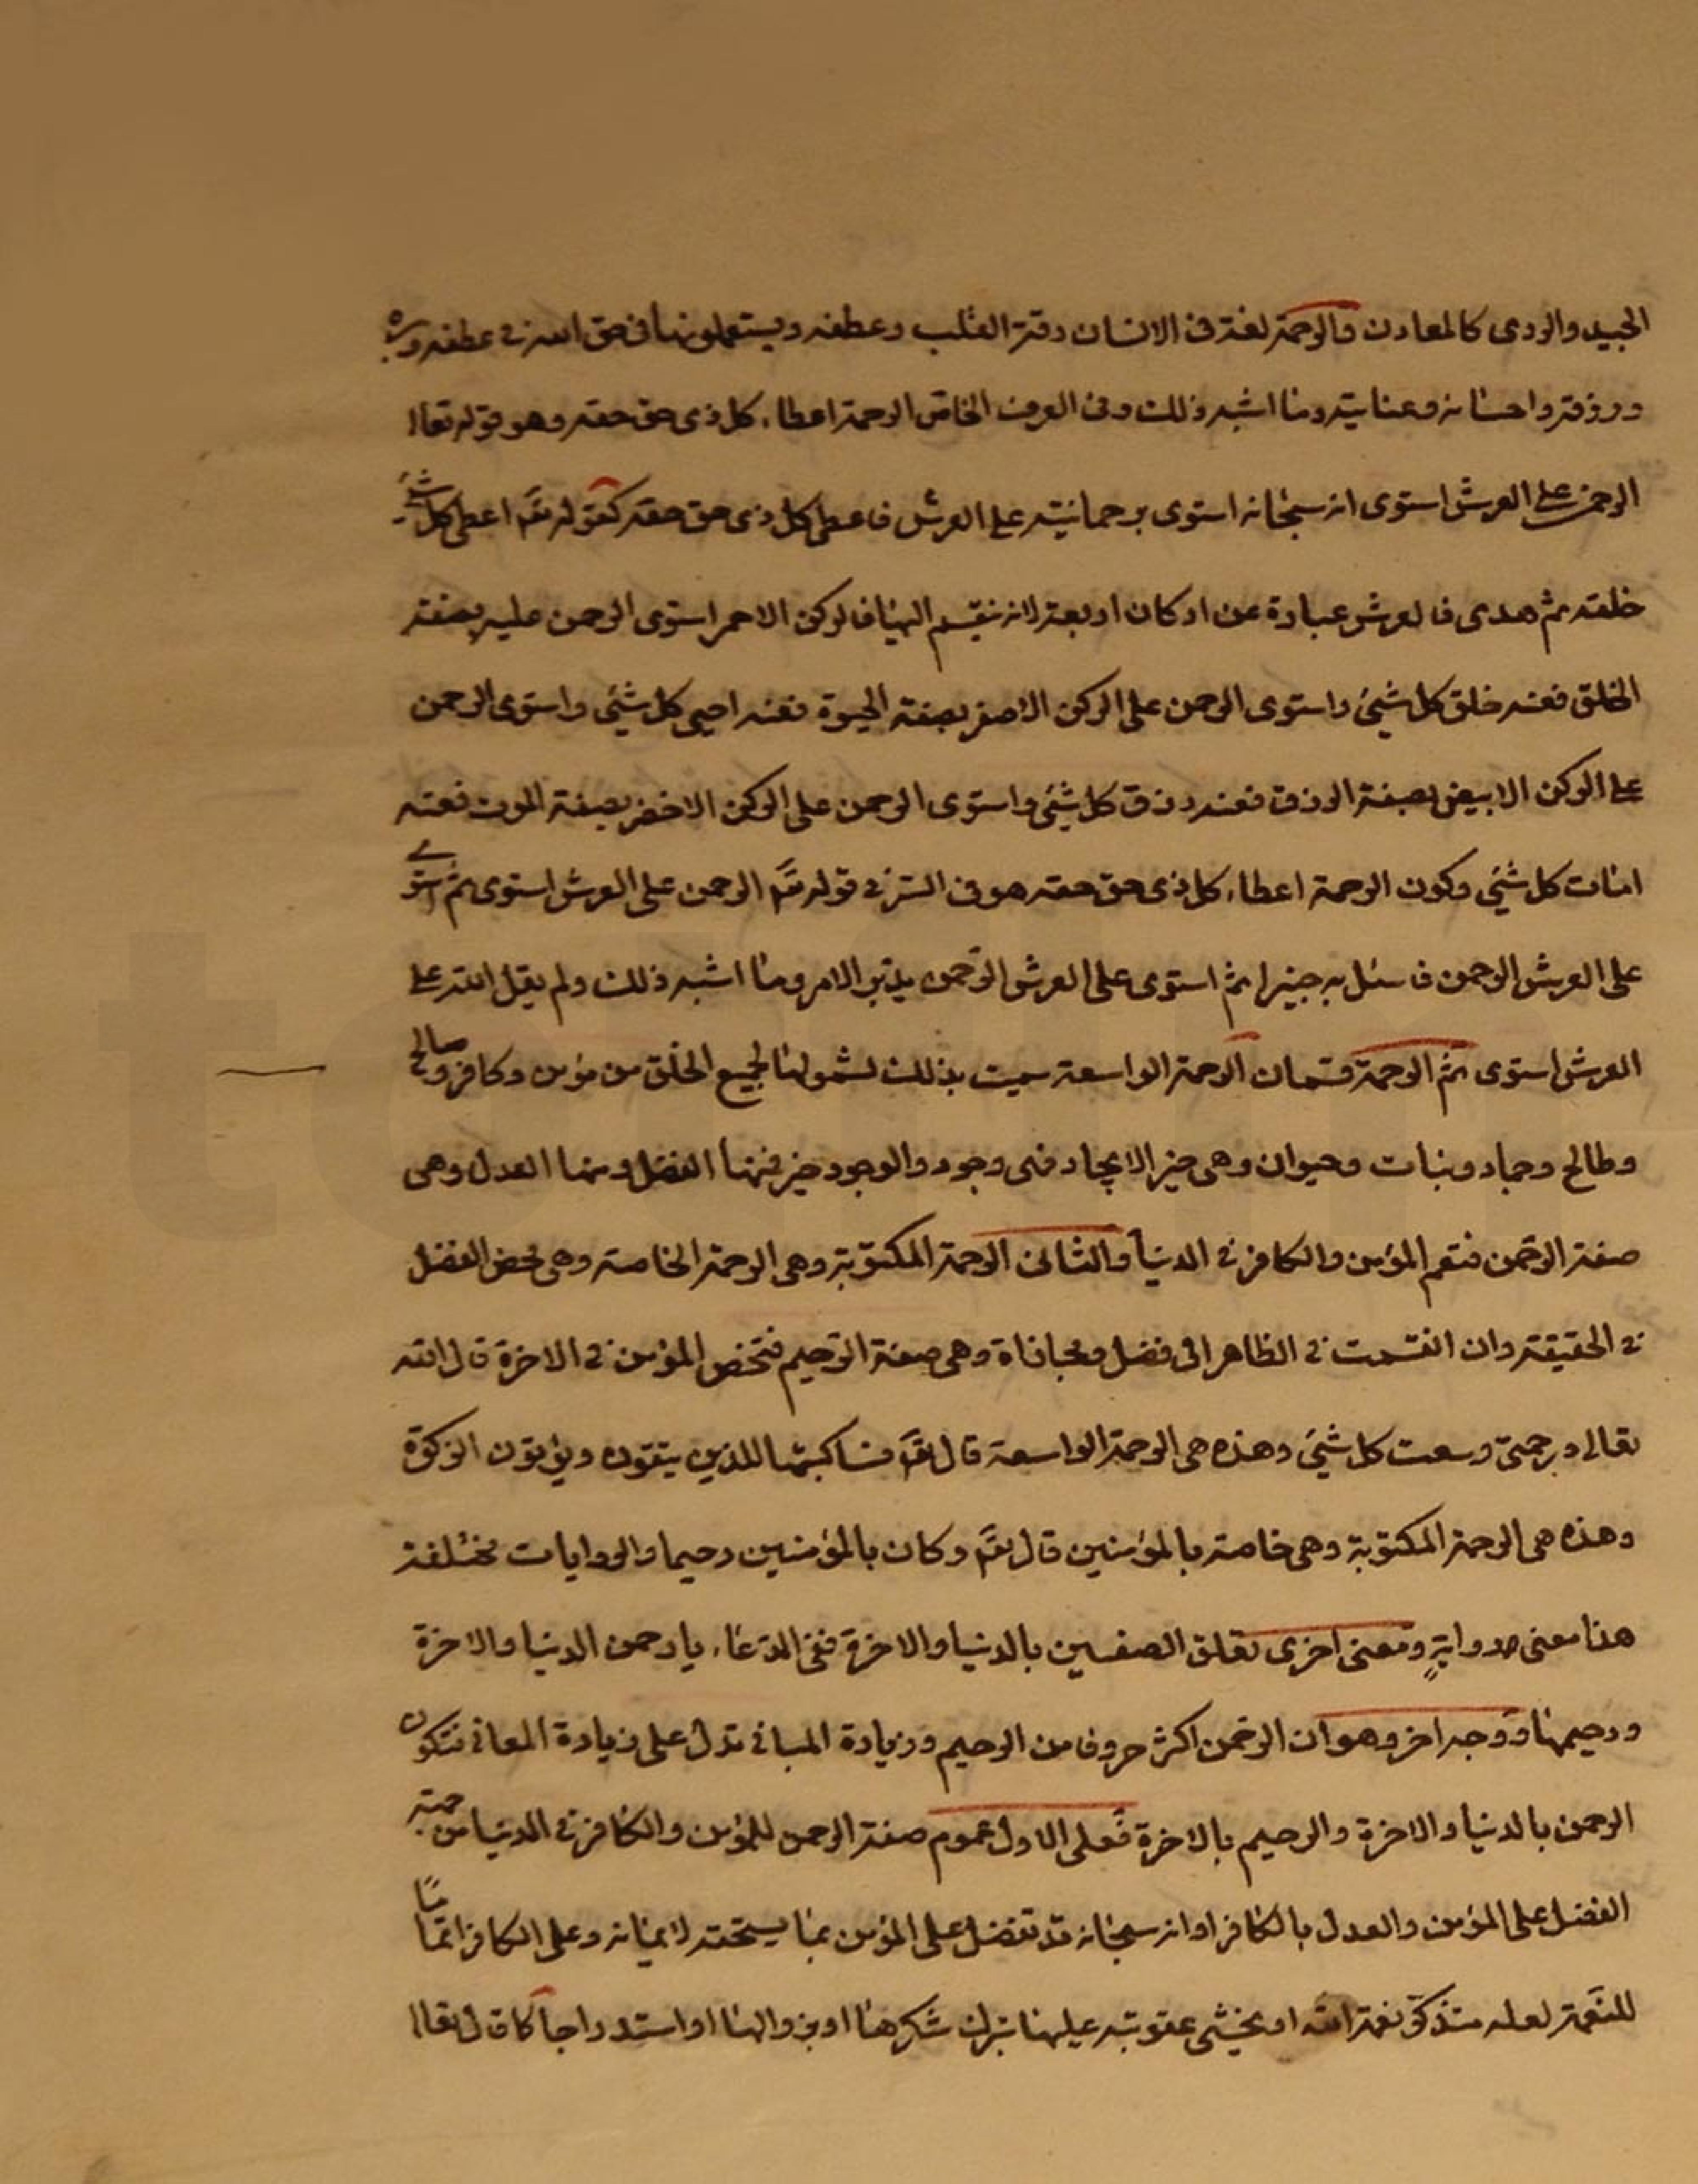 الجيد والردى كالمعادن والرحمة لغة فى الانسان رقة القلب وعطفه ويستعملونها فى حق الله فى عطفه وبره
ورزقه واحسانه وعنايته وما اشبه ذلك وفى العرف الخاص الرحمة اعطاء كل ذى حق حقه وهو قوله تعالى
الرحمن على العرش استوى انه سبحانه استوى برحمانيته على العرش فاعطى كل ذى حق حقه كقوله تعـ اعطى كل شئ
خلقه ثم هدى فالعرش عبارة عن اركان اربعة لانه ينقسم اليها فالركن الاحمر استوى الرحمن عليه بصفة
الخلق فعنه خلق كل شئ واستوى الرحمن على الركن الاصفر بصفة الحيوة فعنه احيى كل شئ واستوى الرحمن
على الركن الابيض بصفة الرزق فعنه رزق كل شئ واستوى الرحمن على الركن الاخضر بصفة الموت فعنه
امات كل شئ وكون الرحمة اعطاء كل ذى حق حقه هو فى السر فى قوله تعـ الرحمن على العرش استوى ثم استوى
على العرش الرحمن فاسئل به خبيرا ثم استوى على العرش الرحمن يدبر الامر وما اشبه ذلك ولم يقل الله على
العرش استوى ثم الرحمة قسمان الرحمة الواسعة سميت بذلك لشمولها لجميع الخلق من مؤمن وكافر وصالح
وطالح وجماد ونبات وحيوان وهى خير الايجاد فهى وجود والوجود خير فمنها الفضل ومنها العدل وهى
صفة الرحمن فتعم المؤمن والكافر فى الدنيا والثانى الرحمة المكتوبة وهى الرحمة الخاصة وهى محض الفضل
فى الحقيقة وان انقسمت فى الظاهر الى فضل ومجازاة وهى صفة الرحيم فتخص المؤمن فى الاخرة قال الله
تعالى ورحمتى وسعت كل شئ وهذه هى الرحمة الواسعة قال تعـ فساكتبها للذين يتقون ويؤتون الزكوة
وهذه هى الرحمة المكتوبة وهى خاصة بالمؤمنين قال تعـ وكان بالمؤمنين رحيما والروايات مختلفة
هذا معنى رواية ومعنى اخرى تعلق الصفتين بالدنيا والاخرة ففى الدعاء يا رحمن الدنيا والاخرة
ورحيمهما ووجه اخر وهو ان الرحمن اكثر حروفا من الرحيم وزيادة المبانى تدل على زيادة المعانى فتكون
الرحمن بالدنيا والاخرة والرحيم بالاخرة فعلى الاول عموم صفة الرحمن للمؤمن والكافر فى الدنيا من جهة
الفضل على المؤمن والعدل بالكافر او انه سبحانه قد تفضل على المؤمن بما يستحقه لايمانه وعلى الكافر اتماما
للنعمة لعله يتذكر نعمة الله او يخشى عقوبته عليها بترك شكرها او بزوالها او استدراجا كما قال تعالى